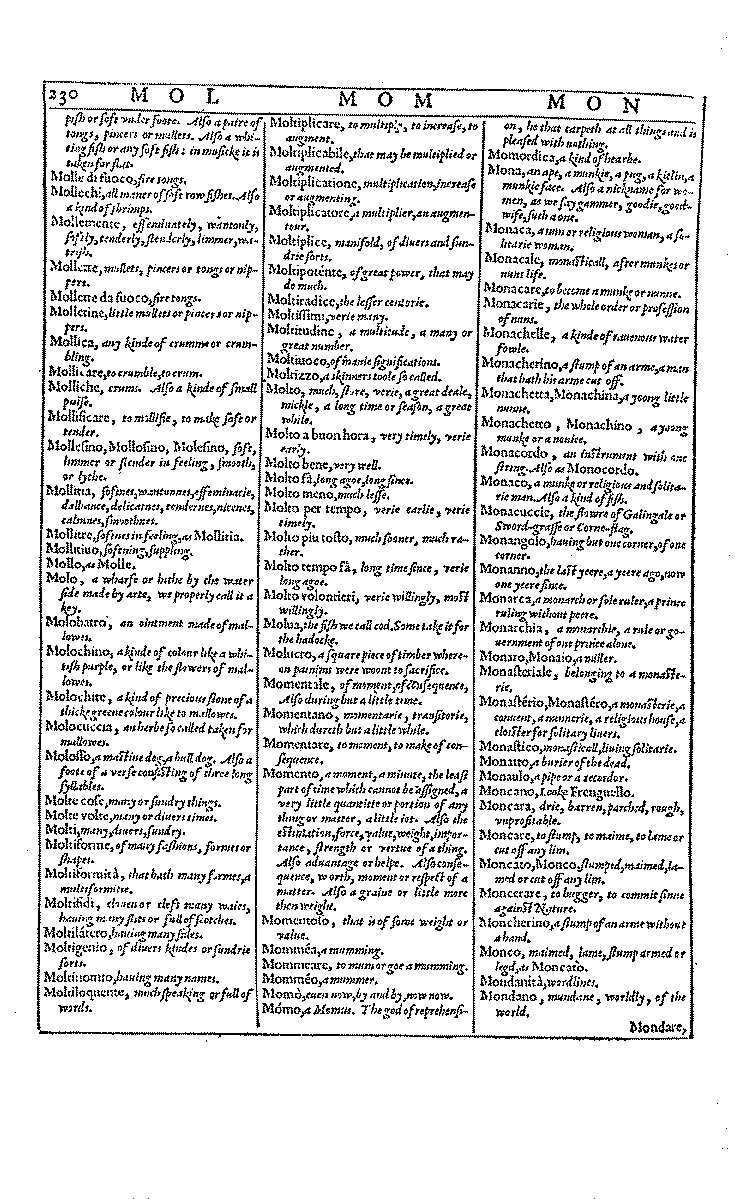 230 MOL MOM MON
fish or soft vnder foote. Also a paire of
tongs, pincers or mullets. Also a whi-
ting fish or any soft fish: in musicke it is
taken for flat.
Molle di fuoco, fire tongs.
Mollechi, all maner of soft row fishes. Also
a kind of shrimps.
Mollemente, effeminately, wantonly,
softly, tenderly, slenderly, limmer, wa-
Mollette, mullets, pincers or tongs or nip-
pers.
Mollette da fuoco, fire tongs.
Molletine, little mullets or pincers or nip-
pers.
Mollica, any kinde of crumme or crum-
bling.
Mollicare, to crumble, to crum.
Molliche, crums. Also a kinde of small
pulse.
Mollificare, to mollifie, to make soft or
tender.
Mollesino, Mollosino, Molesino, soft,
limmer or slender in feeling, smooth,
or lythe.
Mollitia, softnes, wantonnes, effeminacie,
dalliance, delicatnes, tendernes, nicenes,
calmnes, smoothnes.
Mollitie, softnes in feeling, as Mollitia.
Mollitiuo, softening, suppling.
Mollo, as Molle.
Molo, a wharfe or hithe by the water
side made by arte, we properly call it a
key.
Molobatro, an ointment made of mal-
lowes.
Molochino, a kinde of colour like a whi-
tish purple, or like the flowers of mal-
lowes.
Molochite, a kind of precious stone of a
thicke greene colour like to mallowes.
Molocuccia, an herbe so called taken for
mallowes.
Molosso, a mastine dog, a bull dog. Also a
foote of a verse consisting of three long
syllables.
Molte cose, many or sundry things.
Molte volte, many or diuers times.
Molti, many, diuers, sundry.
Moltiforme, of many fashions, formes or
shapes.
Moltiformità, that hath many formes, a
multiformitie.
Moltifidi, clouen or cleft many waies,
hauing many slits or full of scotches.
Moltilátero, hauing many sides.
Moltigenio, of diuers kindes or sundrie
sorts.
Moltinomio, hauing many names.
Moltiloquente, much speaking or full of
words.
Moltiplicare, to multiply, to increase, to
augment.
Moltiplicabile, that may be multiplied or
augmented.
Moltiplicatione, multiplication, increase
or augmenting.
Moltiplicatore, a multiplier, an augmen-
tour.
Moltiplice, manifold, of diuers and sun-
drie sorts.
Moltipotente, of great power, that may
do much.
Moltiradice, the lesser centorie.
Moltissimi, verie many.
Moltitudine, a multitude, a many or
great number.
Moltiuoco, of manie significations.
Moltizzo, a skinners toole so called.
Molto, much, store, verie, a great deale,
mickle, a long time or season, a great
while.
Molto a buon hora, very timely, verie
early.
Molto bene, very well.
Molto fà, long agoe, long since.
Molto meno, much lesse.
Molto per tempo, verie earlie, verie
timely.
Molto piu tosto, much sooner, much ra-
ther.
Molto tempo fà, long time since, verie
long agoe.
Molto volontieri, verie willingly, most
willingly.
Molua, the fish we call cod. Some take it for
the hadocke.
Molucro, a square piece of timber where-
on painims were woont to sacrifice.
Momentale, of moment, of consequence,
Also during but a little time.
Momentano, momentarie, transitorie,
which dureth but a little while.
Momentare, to moment, to make of con-
sequence.
Momento, a moment, a minute, the least
part of time which cannot be assigned, a
very little quantitie or portion of any
thing or matter, a little iot. Also the
estimation, force, value, weight, impor-
tance, strength or vertue of a thing.
Also aduantage or helpe. Also conse-
quence, worth, moment or respect of a
matter. Also a graine or little more
then weight.
Momentolo, that is of some weight or
value.
Momméa, a mumming.
Mommeare, to mum or goe a mumming.
Momméo, a mummer.
Momò, euen now, by and by, now now.
Mómo, a Momus. The god of reprehensi-
on, he that carpeth at all things and is
pleased with nothing.
Momordica, a kind of hearbe.
Mona, an ape, a munkie, a pug, a kitlin, a
munkie face. Also a nickname for wo-
men, as we say gammer, goodie, good-
wife, such a one.
Monaca, a nun or religious woman, a so-
litarie woman.
Monacale, monasticall, after munkes or
nuns life.
Monacare, to become a munke or nunne.
Monacarie, the whole order or profession
of nuns.
Monachelle, a kinde of rauenous water
fowle.
Monacherino, a stump of an arme, a man
that hath his arme cut off.
Monachetta, Monachina, a yoong little
nunne.
Monachetto, Monachino, a yoong
munke or a nouice.
Monacordo, an instrument with one
string. Also as Monocordo.
Monaco, a munke or religious and solita-
rie man. Also a kind of fish.
Monacuccie, the flowre of Galingale or
Sword-grasse or Corne-flag.
Monangolo, hauing but one corner, of one
corner.
Monanno, the last yeere, a yeere ago, now
one yeere since.
Monarca, a monarch or sole ruler, a prince
ruling without peere.
Monarchia, a monarchie, a rule or go-
uernment of one prince alone.
Monaro, Monaio, a miller.
Monasteriale, belonging to a monaste-
rie.
Monastério, Monastéro, a monasterie, a
conuent, a nunnerie, a religious house, a
cloister for solitary liuers.
Monastico, monasticall, liuing solitarie.
Monatto, a burier of the dead.
Monaulo, a pipe or a recordor.
Moncano, Looke Frenguello.
Moncara, drie, barren, parched, rough,
vnprofitable.
Moncare, to stump, to maime, to lame or
cut off any lim.
Moncato, Monco, stumped, maimed, la-
med or cut off any lim.
Moncerare, to bugger, to commit sinne
against Nature.
Moncherino, a stump of an arme without
a hand.
Monco, maimed, lame, stump armed or
legd, as Moncato.
Mondanità, wordlines.
Mondano, mundane, worldly, of the
world.
Mondare,